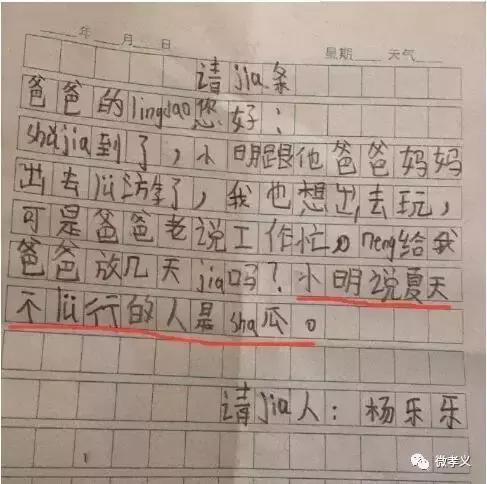 年 月 日 星期 天气
请jia条
爸爸的lingdao您好：
shǔjia到了，小明跟他爸爸妈妈
出去lü游了，我也想出去玩，
可是爸爸老说工作忙。neng给我
爸爸放几天jia吗？小明说夏天
不lü行的人是sha瓜。
请jia人：杨乐乐
微孝义